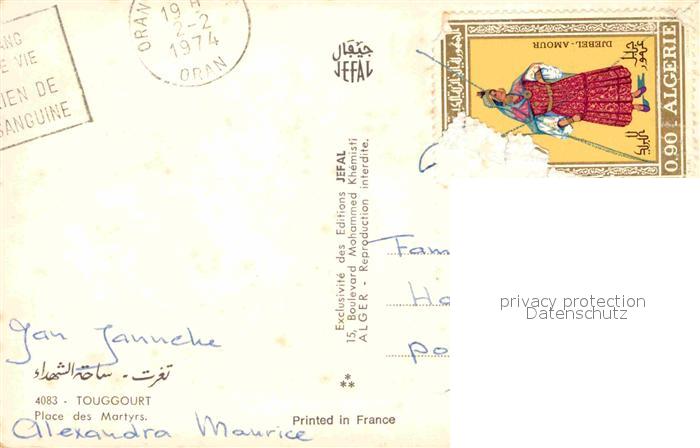 ORAN
19H
2-2
1974
ORAN
ANG
E VIE
IEN DE
SANGUINE
جيفال
JEFAL
DJEBEL-AMOUR
0.90 - ALGERIE
Exclusivité des Editions JEFAL
15, Boulevard Mohammed Khémisti
ALGER - Reproduction interdite.
Fam
Ha
po
privacy protection
Datenschutz
Jan Janneke
تقرت - ساحة الشهداء
4083 - TOUGGOURT
Place des Martyrs.
Alexandra Maurice
**
Printed in France